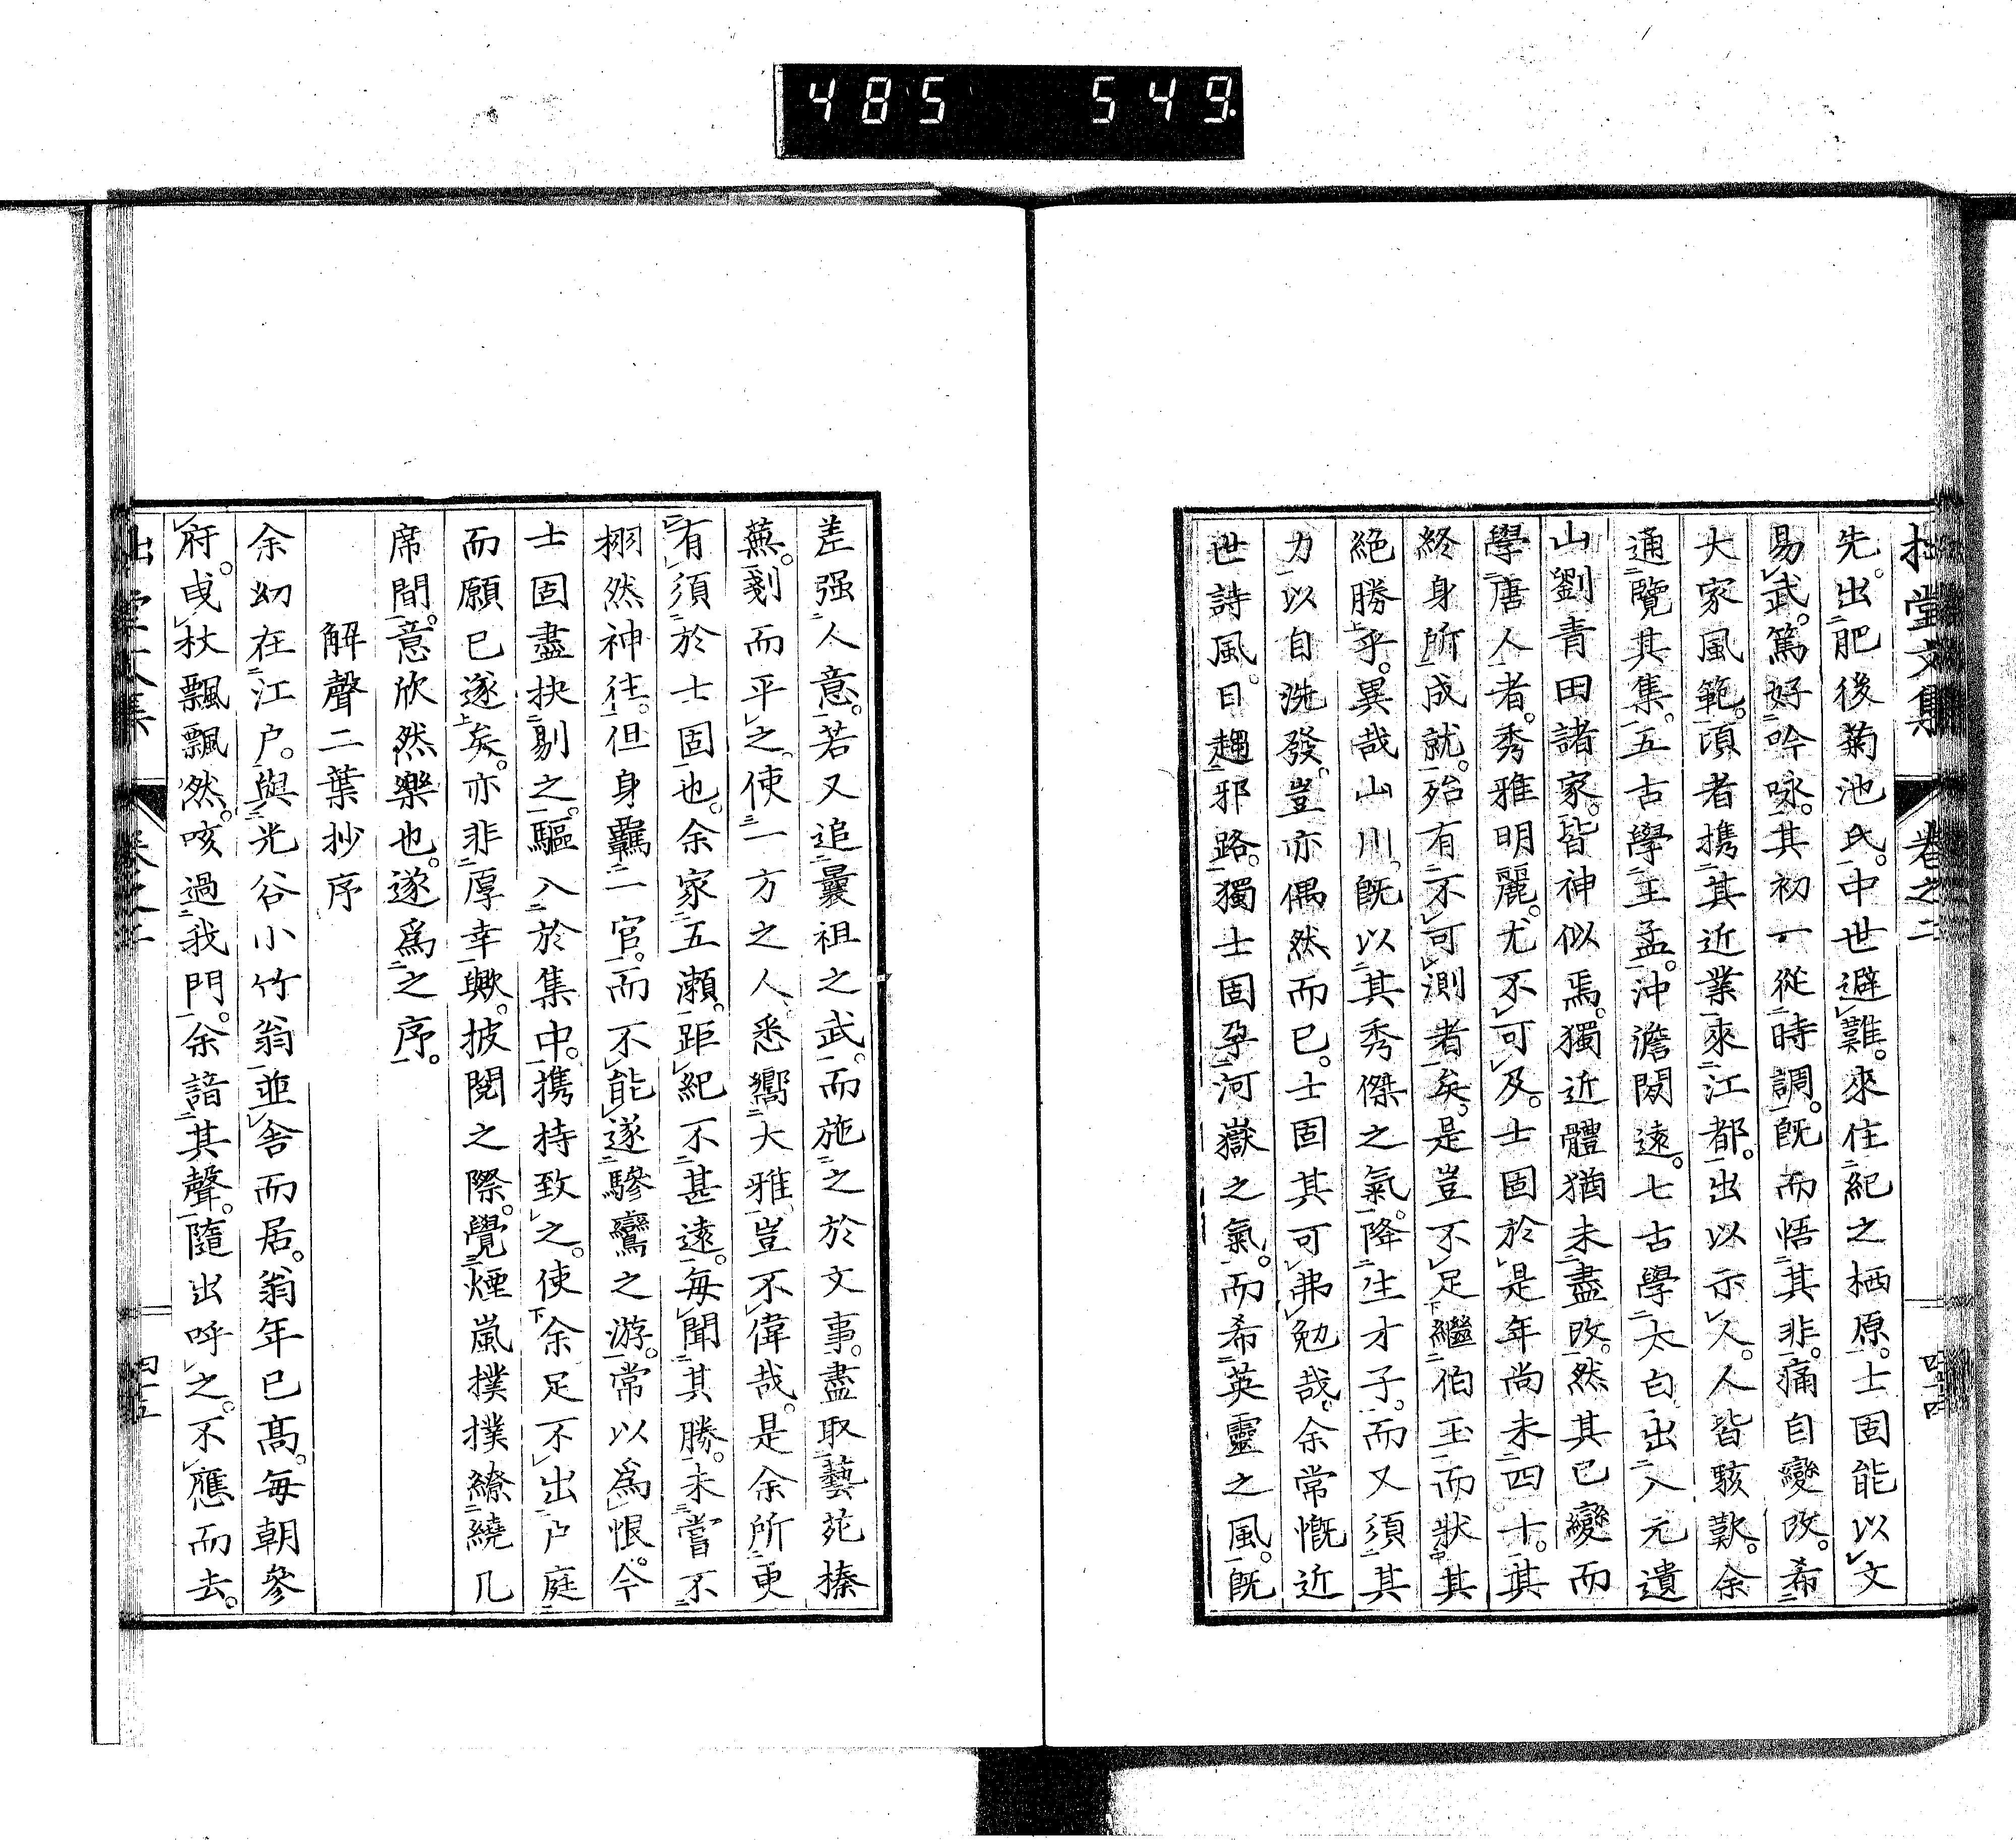 485 549
拙堂文集 卷之二 四十四
先。出肥後菊池氏。中世避難。來住紀之栖原。士固能以文
易武。篤好吟咏。其初一從時調。既而悟其非。痛自變改。希
大家風範。頃者携其近業來江都。出以示人。人皆駭歎。余
通覽其集。五古學王孟。沖澹閑遠。七古學太白。出入元遺
山劉青田諸家。皆神似焉。獨近體猶未盡改。然其已變而
學唐人者。秀雅明麗。尤不可及。士固於是年尚未四十。其
終身所成就。殆有不可測者矣。是豈不足繼伯玉而狀其
絶勝乎。異哉山川。既以其秀傑之氣。降生才子。而又須其
力以自洗發。豈亦偶然而已。士固其可弗勉哉。余常慨近
世詩風。日趨邪路。獨士固孕河嶽之氣。而希英靈之風。既
差强人意。若又追曩祖之武。而施之於文事。盡取藝苑榛
蕪。剗而平之。使一方之人悉嚮大雅。豈不偉哉。是余所更
有須於士固也。余家五瀬。距紀不甚遠。毎聞其勝。未嘗不
栩然神往。但身羈一官。而不能遂驂鸞之游。常以為恨。今
士固盡抉剔之。驅入於集中。携持致之。使余足不出户庭
而願已遂矣。亦非厚幸歟。披閲之際。覺煙嵐撲撲繚繞几
席間。意欣然樂也。遂為之序。
解聲二葉抄序
余幼在江户。與光谷小竹翁並舎而居。翁年已高。毎朝參
府。曳杖飄飄然。咳過我門。余諳其聲。隨出呼之。不應而去。
拙堂文集 卷之二 四十五